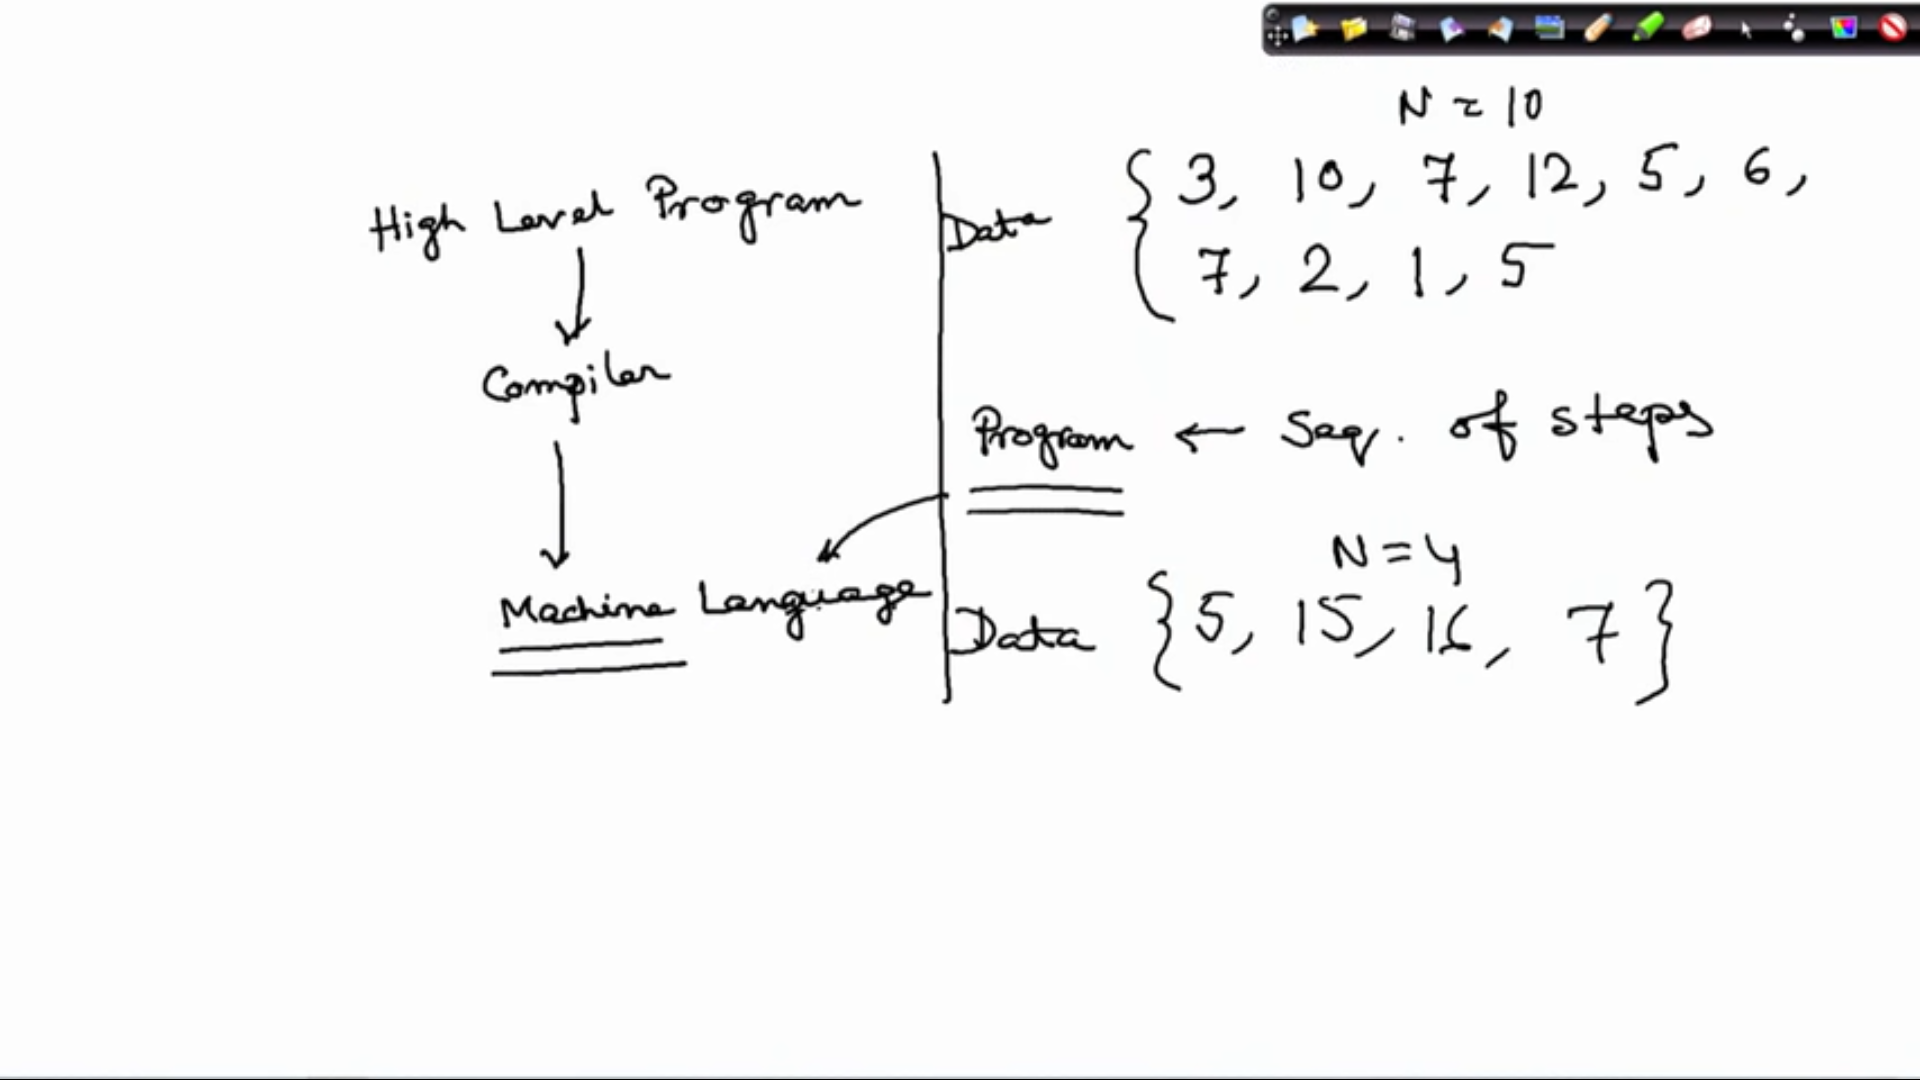 High Level Program
Compiler
Machine Language
N = 10
Data { 3, 10, 7, 12, 5, 6,
7, 2, 1, 5
Program ← Seq. of steps
N = 4
Data { 5, 15, 16, 7 }